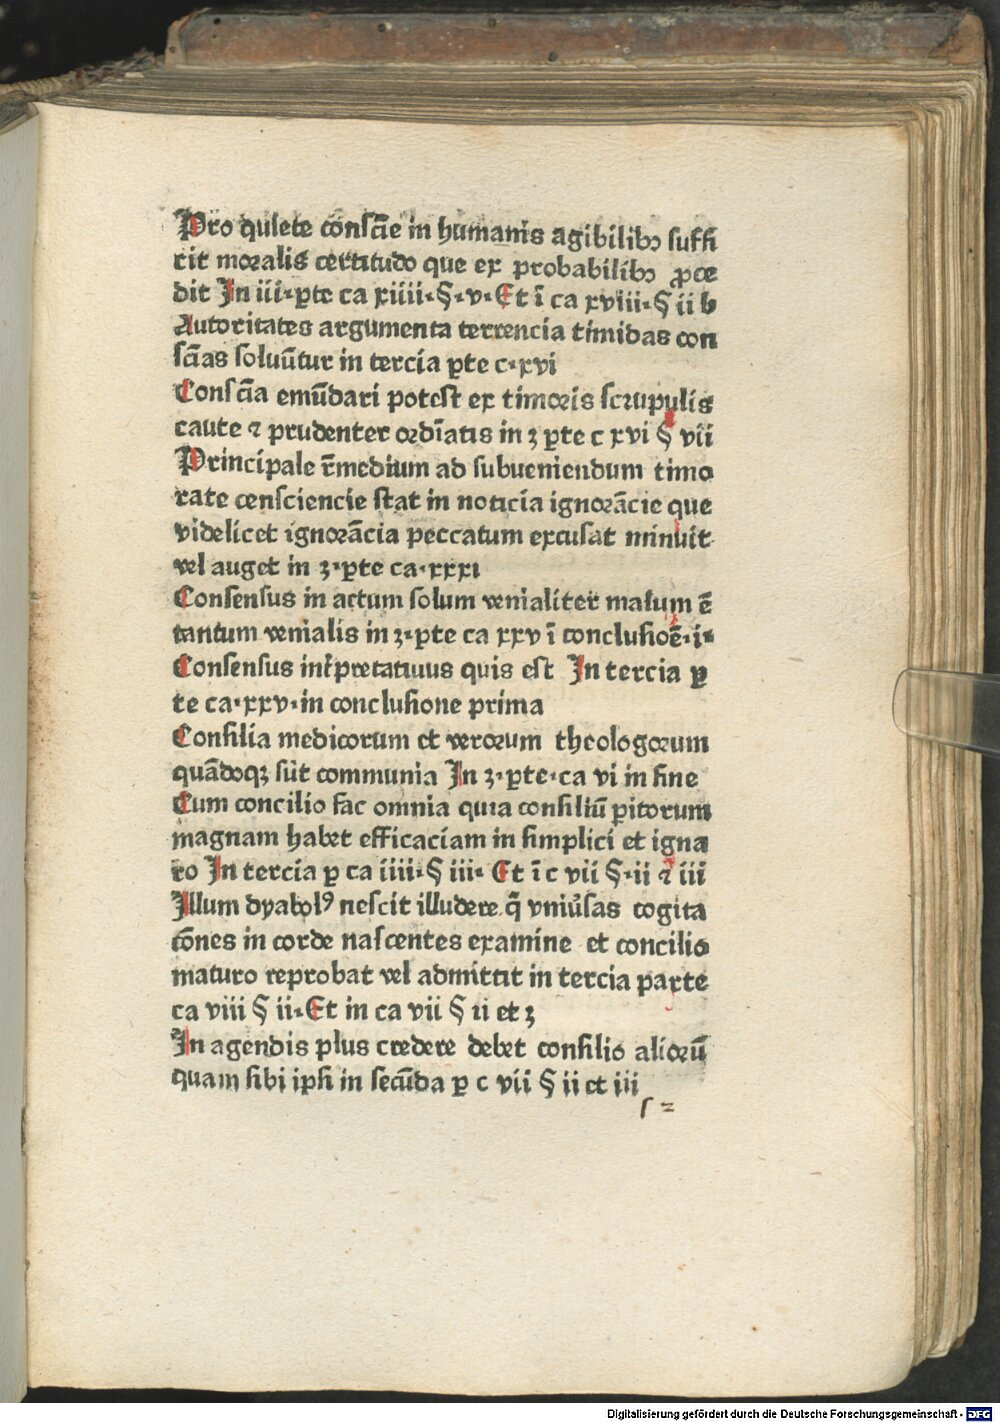 Pro quiete consc̄ie in humanis agibilibꝫ suffi
cit moralis certitudo que ex probabilibꝫ ꝓce
dit In iii·ꝑte ca xiiii·§·v·Et ī ca xviii·§ ii b
Autoritates argumenta terrencia timidas con
sc̄ias soluūtur in tercia ꝑte c·xvi
Consc̄ia emūdari potest ex timoris scrupulis
caute ⁊ prudenter ordīatis in ʒ ꝑte c xvi § vii
Principale r̄medium ad subueniendum timo
rate censciencie stat in noticia ignorācie que
videlicet ignorācia peccatum excusat minuit
vel auget in ʒ·ꝑte ca·xxxi
Consensus in actum solum venialiter malum ē
tantum venialis in ʒ·ꝑte ca xxv ī conclusiōe·i·
Consensus int̄pretatiuus quis est In tercia ꝑ
te ca·xxv·in conclusione prima
Consilia medicorum et verorum theologorum
quādoqꝫ sūt communia In ʒ·ꝑte·ca vi in fine
Cum concilio fac omnia quia consiliū ꝑitorum
magnam habet efficaciam in simplici et igna
ro In tercia ꝑ ca iiii·§ iii· Et ī c vii §·ii ⁊ iii
Illum dyabolꝰ nescit illudere q̄ vniūsas cogita
cōnes in corde nascentes examine et concilio
maturo reprobat vel admittit in tercia parte
ca viii § ii·Et in ca vii § ii et ʒ
In agendis plus credere debet consilio aliorū
quam sibi ipsi in secūda ꝑ c vii § ii et iii
Digitalisierung gefördert durch die Deutsche Forschungsgemeinschaft - DFG